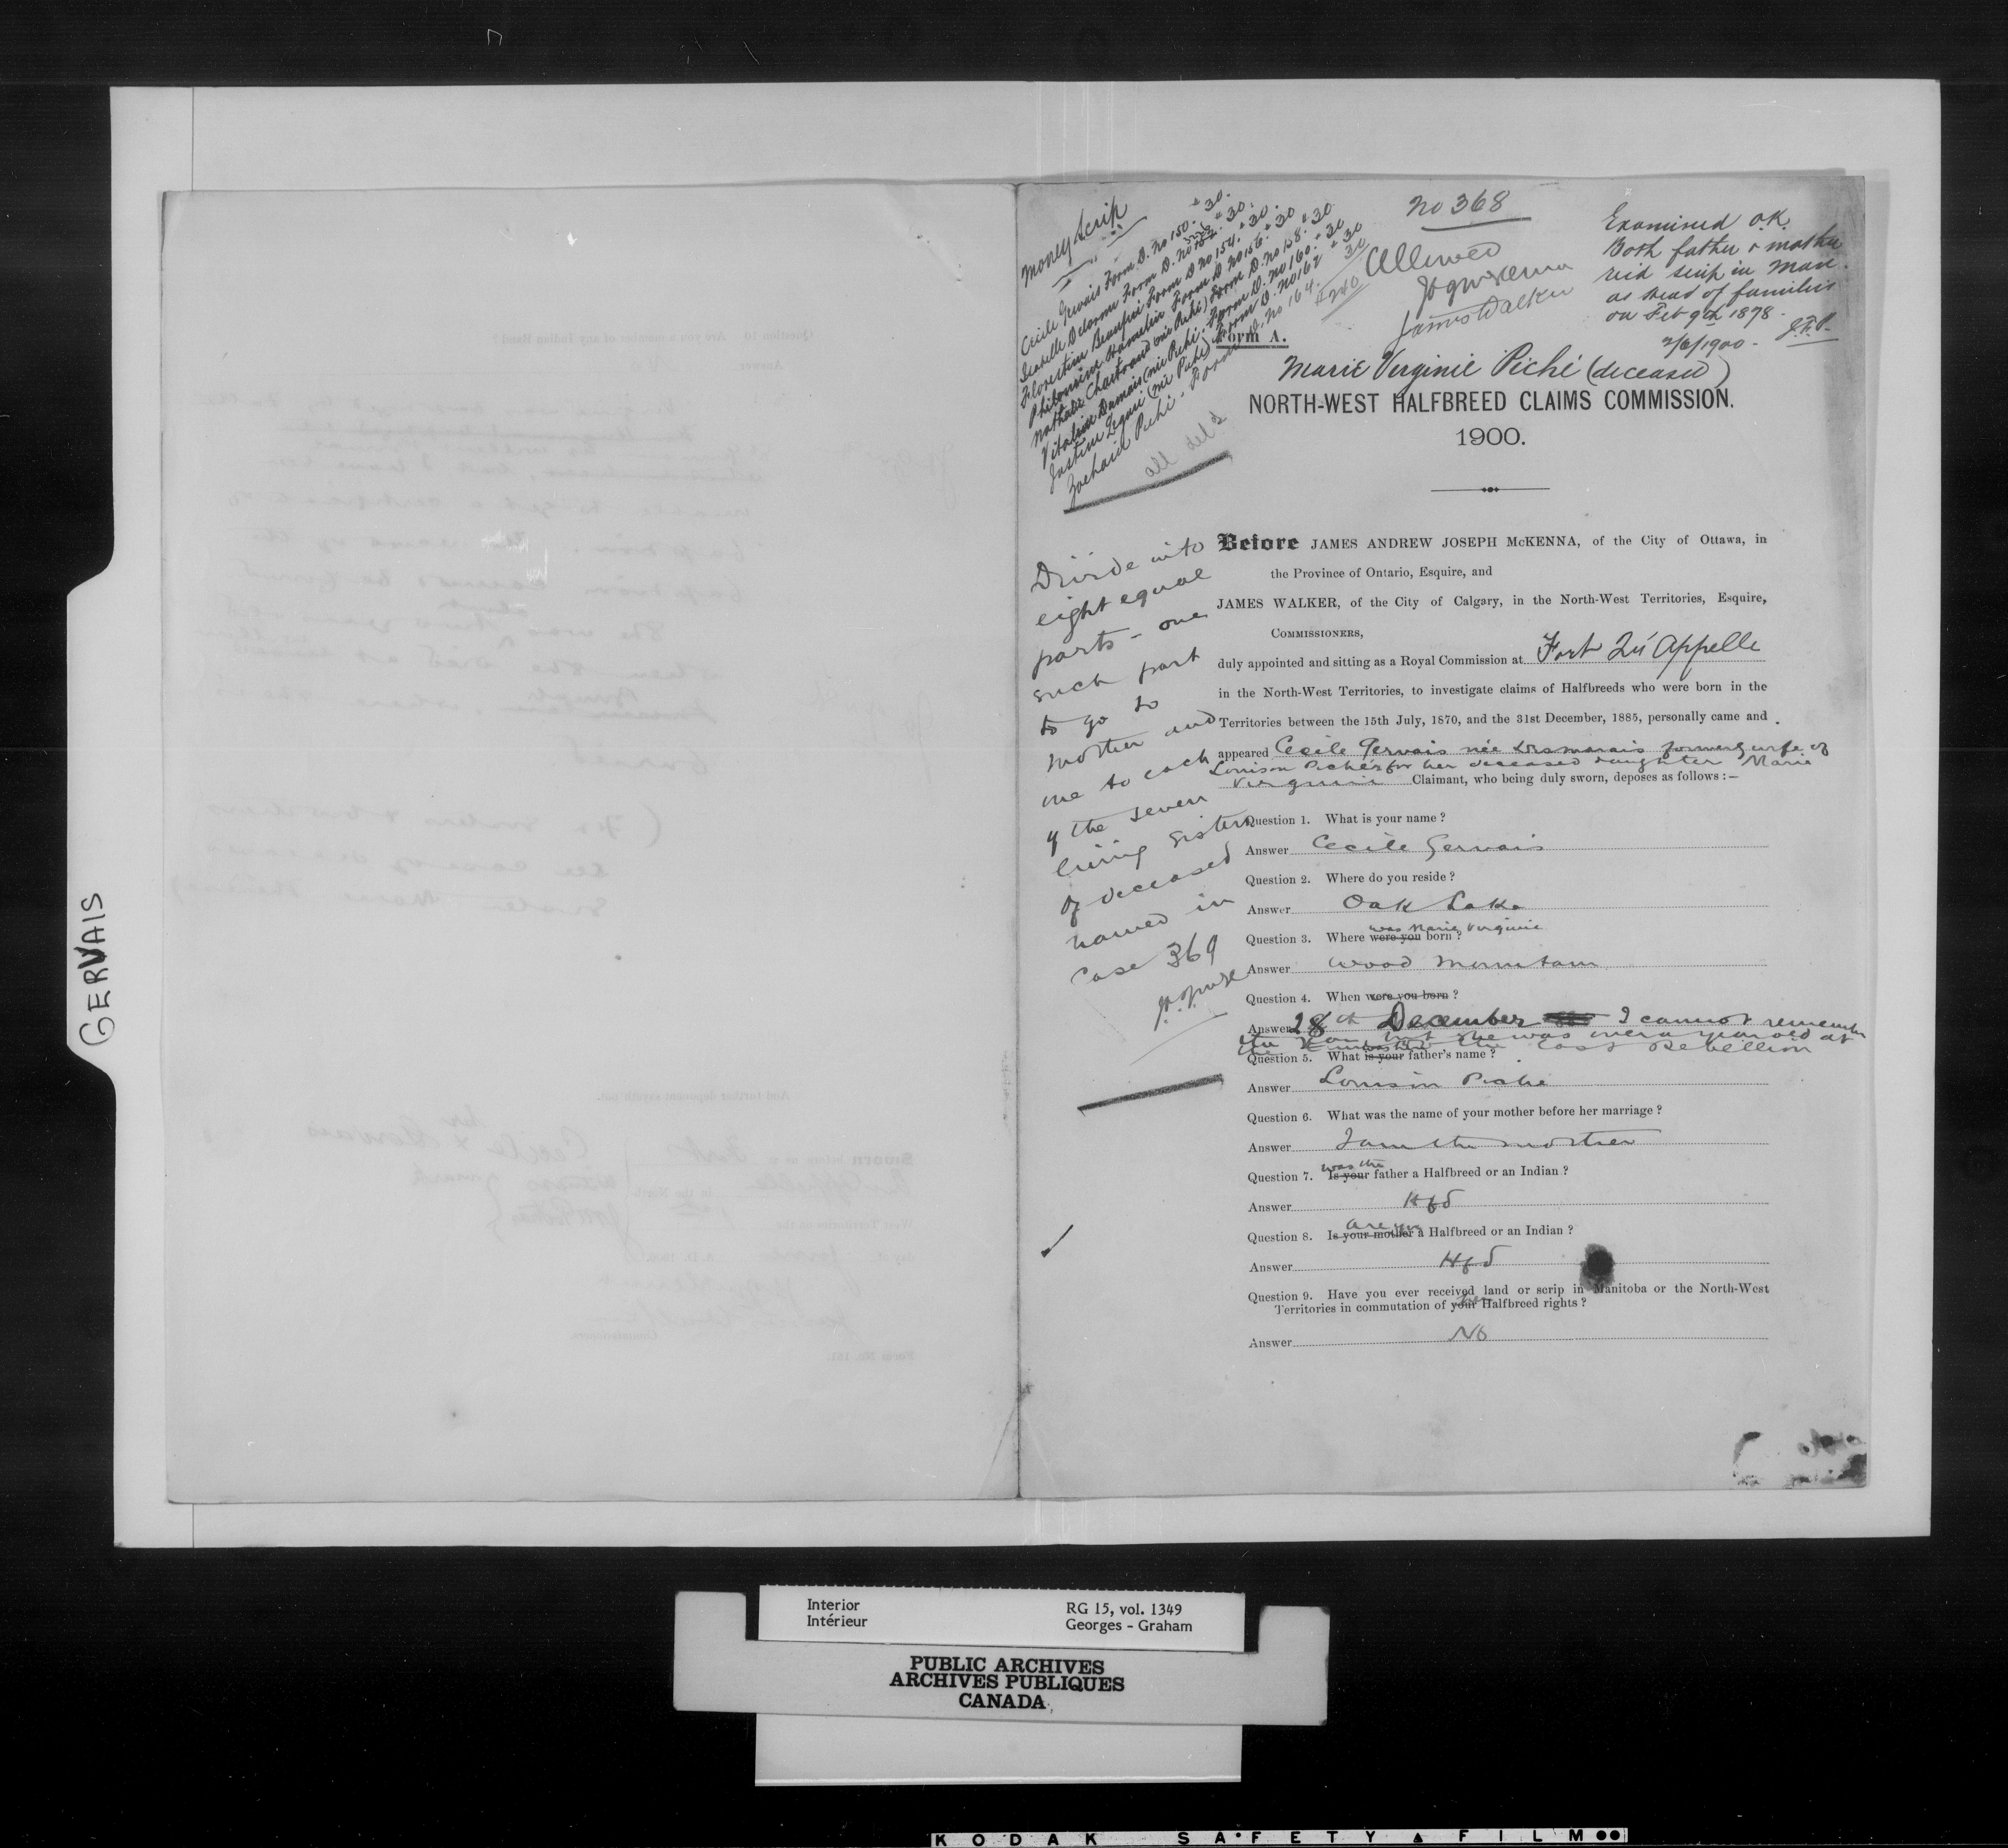 GERVAIS
Money Scrip
Cecile Gervais Form D. No 150. $30.
Isabelle Delorme Form D. No 152. $30.
Florestine Beaupré Form D No 154. $30.
Philomène Hamelin Form D No 156. $30
Nathalie Chartrand (née Piché) Form D. No 158. $30
Vitaline Dumais (née Piché) Form D. No 160. $30
Justine Leguré (née Piché) Form D. No 162 $30
Zachaid Piché. Form D. No 164. 30
$240
all del'd
No 368
Allowed
J A J McKenna
James Walker
Examined O.K.
Both father & mother
rec'd scrip in Man.
as head of families
on Feb 9th 1878.
2/6/1900. J.F.P.
Form A.
Marie Virginie Piché (deceased)
NORTH-WEST HALFBREED CLAIMS COMMISSION.
1900.
Divide into
eight equal
parts - one
such part
to go to
mother and
one to each
of the seven
living sisters
of deceased
named in
Case 369
Before JAMES ANDREW JOSEPH McKENNA, of the City of Ottawa, in
the Province of Ontario, Esquire, and
JAMES WALKER, of the City of Calgary, in the North-West Territories, Esquire,
COMMISSIONERS,
duly appointed and sitting as a Royal Commission at Fort Qu'Appelle
in the North-West Territories, to investigate claims of Halfbreeds who were born in the
Territories between the 15th July, 1870, and the 31st December, 1885, personally came and
appeared Cecile Gervais née Desmarais formerly wife of
Louison Piché for her deceased daughter Marie
Virginie Claimant, who being duly sworn, deposes as follows :—
Question 1. What is your name ?
Answer Cecile Gervais
Question 2. Where do you reside ?
Answer Oak Lake
was Marie Virginie
Question 3. Where were you born ?
Answer Wood Mountain
Question 4. When were you born ?
Answer 28th December I cannot remember
the year but she was over a year old at
the time of the last Rebellion
Question 5. What is your father's name ?
Answer Louison Piche
Question 6. What was the name of your mother before her marriage ?
Answer I am the mother
was the
Question 7. Is your father a Halfbreed or an Indian ?
Answer Hfd
are you
Question 8. Is your mother a Halfbreed or an Indian ?
Answer Hfd
Question 9. Have you ever received land or scrip in Manitoba or the North-West
Territories in commutation of your her Halfbreed rights ?
Answer No
Interior
Intérieur
RG 15, vol. 1349
Georges – Graham
PUBLIC ARCHIVES
ARCHIVES PUBLIQUES
CANADA
KODAK SAFETY FILM